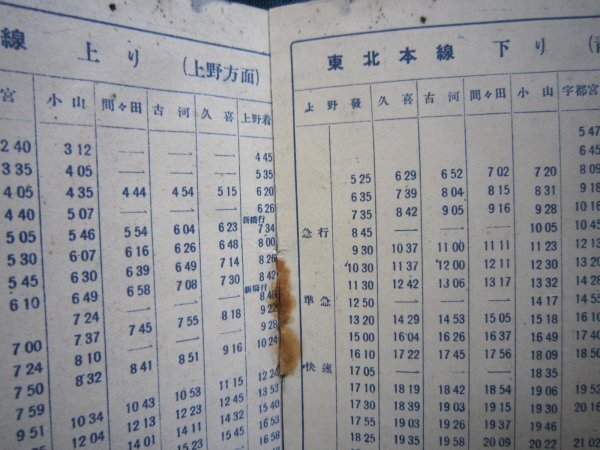 線 上り (上野方面)
宮 小山 間々田 古河 久喜 上野着
2 40 3 12 — — — 4 45
3 35 4 05 — — — 5 35
4 05 4 35 4 44 4 54 5 15 6 20
4 40 5 07 — — — 6 26
新橋行
5 05 5 46 5 54 6 04 6 23 7 34
5 30 6 07 6 16 6 26 6 48 8 00
5 45 6 30 6 39 6 49 7 14 8 26
6 10 6 49 6 58 7 08 7 30 8 42
新橋行
7 24 7 45 7 55 8 18 8 48
7 00 7 37
7 24 8 10 8 41 8 51 9 16
7 50 8 32
7 59 10 43 10 53 11 15 12 24
9 51 10 34 12 13 12 23 12 45 13 53
12 04 14 01 14 11 14 32 15 40
15 23 15 45 16 53
16 58
東北本線 下り
上野發 久喜 古河 間々田 小山 宇都宮
5 47
6 45
5 25 6 29 6 52 7 02 7 20 8 09
6 35 7 39 8 04 8 15 8 31 9 18
7 35 8 42 9 05 9 16 9 28 10 16
急行 8 45 — — — — 10 45
9 30 10 37 11 00 11 11 11 23 12 13
10 30 11 37 12 00 12 11 12 30
11 30 12 42 13 06 13 17 13 32
準急 12 50 — — — 14 17 14 55
13 20 14 29 14 53 15 05 15 20 16 10
15 00 16 04 16 26 16 37 16 49 17 40
16 10 17 22 17 45 17 56 18 09 18 50
快速 17 05 — — — 18 35
17 10 18 19 18 42 18 54 19 06 19 52
17 30 18 39 19 03 19 15 19 30 20 16
17 55 19 03 19 26 19 37 19 46
18 25 19 35 19 58 20 09 20 22 21 02